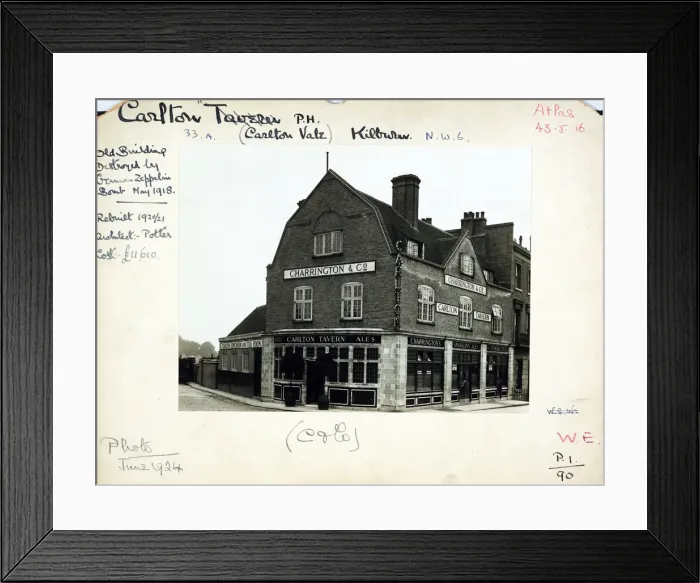 "Carlton" Tavern P.H.
33.A. (Carlton Vale) Kilburn. N.W.6.
Atlas
43-J 16
Old Building
Destroyed by
German Zeppelin
Bomb May 1918.
Rebuilt 1920/21
Architect:- Potter
Cost:- £11610.
CHARRINGTON & Co
CHARRINGTON & Co
CARLTON
CARLTON
TAVERN
CARLTON TAVERN ALES
CHARRINGTON'S
(C & Co)
Photo
June 1924
W.E.
P.1.
90